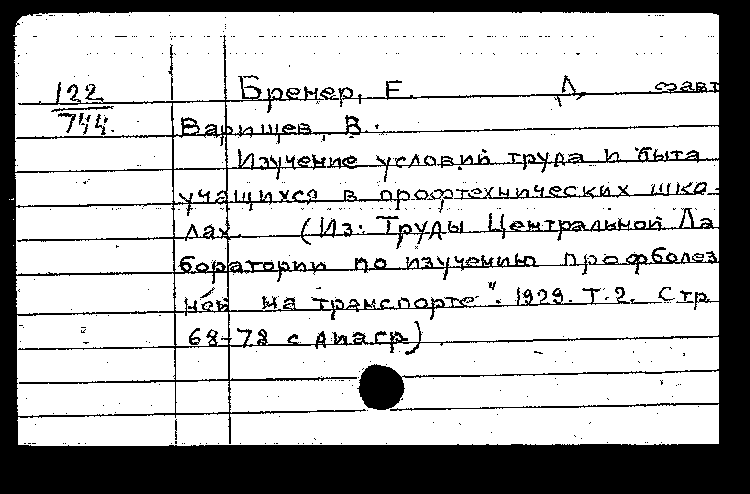 122 Бремер, Е. Д
744. Варищев, В.
Изучение условий труда и быта
учащихся в профтехнических шко-
лах. (Из: Труды Центральной Ла
боратории по изучению профболез
ней на транспорте". 1929. Т. 2. Стр
68-78 с диагр)